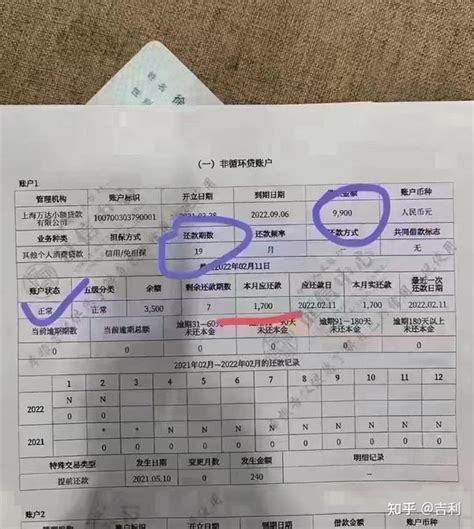 姓名
徐
（一）非循环贷账户
账户1
管理机构 账户标识 开立日期 到期日期 金额 账户币种
上海万达小额贷款有限公司 100700303790001 2022.09.06 9,900 人民币元
业务种类 担保方式 还款期数 还款频率 还款方式 共同借款标志
其他个人消费贷款 信用/免担保 19 月 -- 无
2022年02月11日
账户状态 五级分类 余额 剩余还款期数 本月应还款 应还款日 本月实还款 最近一次还款日期
正常 正常 3,500 7 1,700 2022.02.11 1,700 2022.02.11
当前逾期期数 当前逾期总额 逾期31—60天未还本金 逾期91—180天未还本金 逾期180天以上未还本金
0 0 0 0 0 0
2021年02月—2022年02月的还款记录
1 2 3 4 5 6 7 8 9 10 11 12
2022 N N
0 0
2021 * * N N N N N N N N N
特殊交易类型 发生日期 变更月数 发生金额 明细记录
提前还款 2021.05.10 0 240 --
账户2
管理机构 账户标识 开立日期 到期日期 借款金额 账户币种
知乎 @吉利